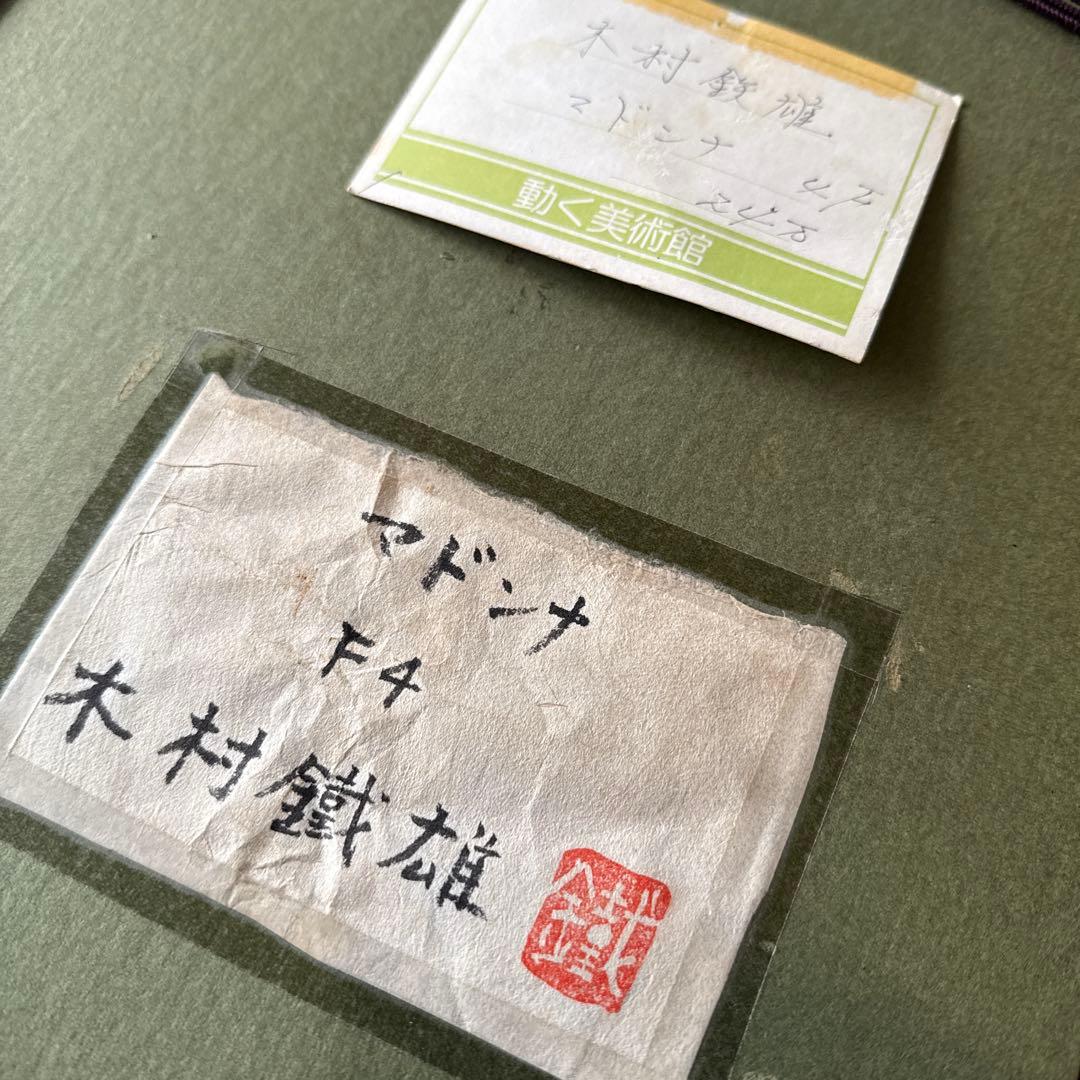 木村鉄雄
マドンナ
4F
24万
動く美術館
マドンナ
F4
木村鐵雄
鐵